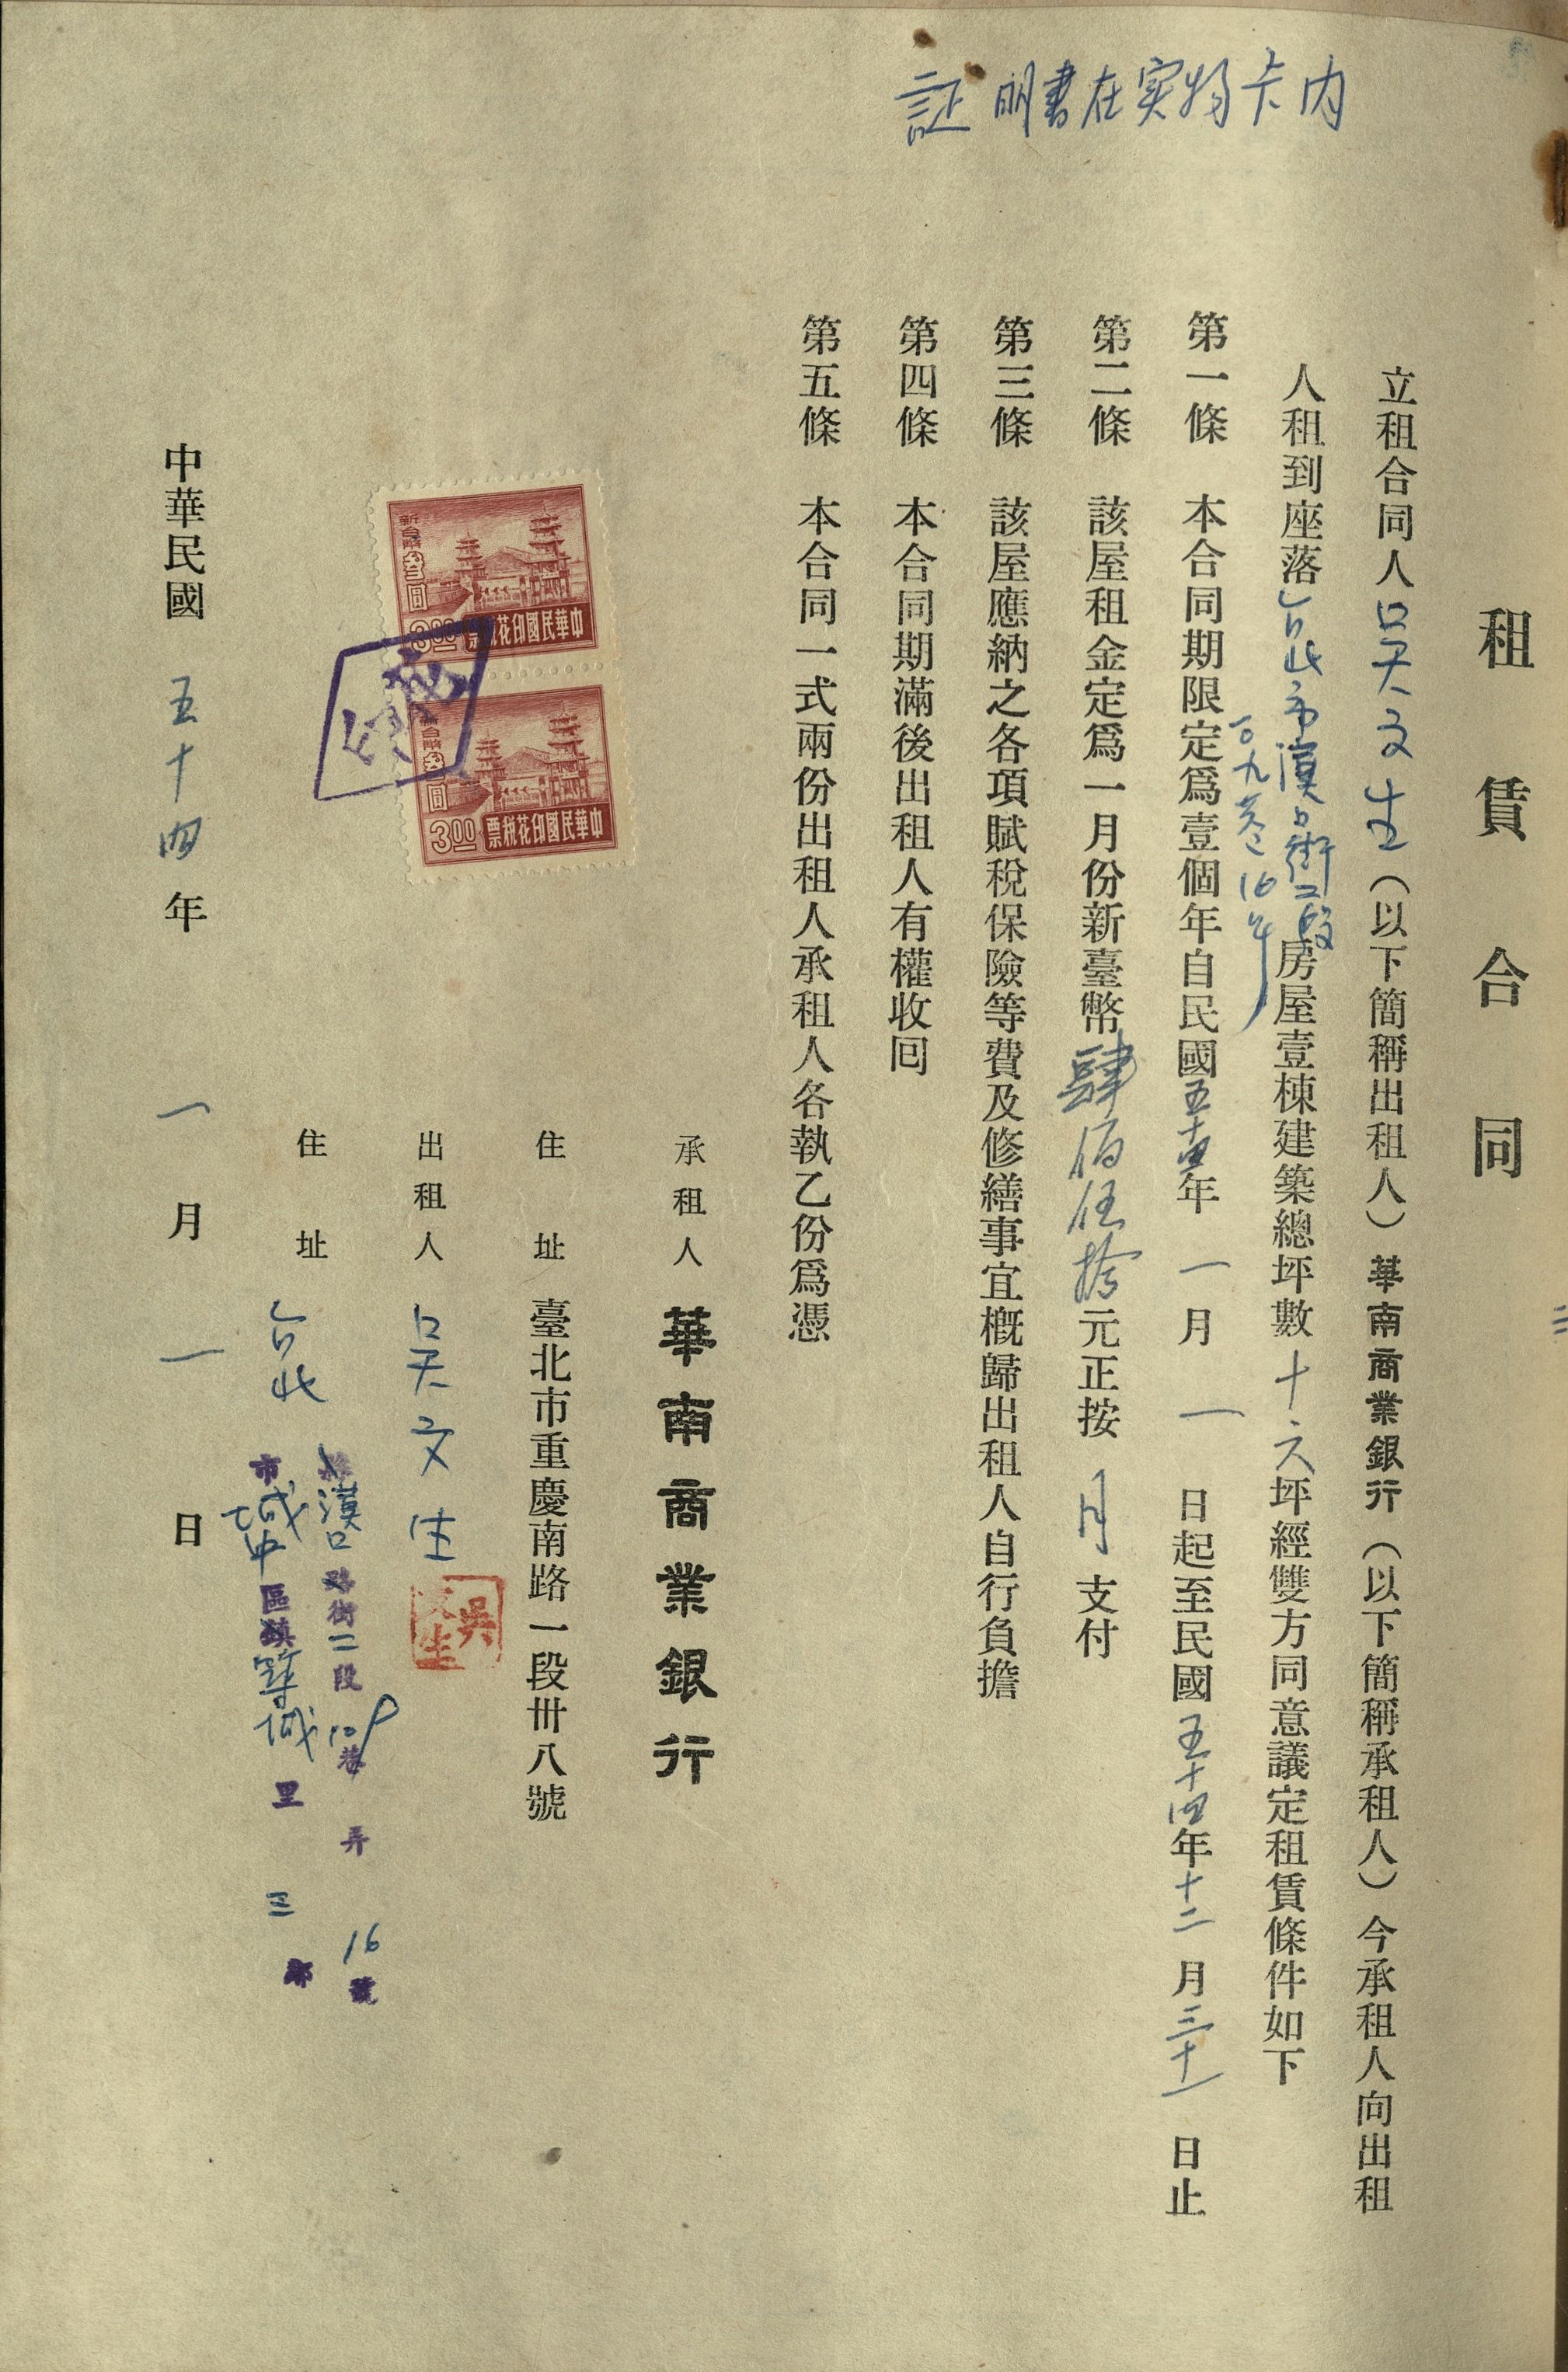 証明書在实物卡內
租賃合同
立租合同人吳文生（以下簡稱出租人）華南商業銀行（以下簡稱承租人）今承租人向出租
人租到座落台北市漢口街二段
一〇九巷16号
房屋壹棟建築總坪數十六坪經雙方同意議定租賃條件如下
第一條　本合同期限定為壹個年自民國五十四年一月一日起至民國五十四年十二月三十一日止
第二條　該屋租金定為一月份新臺幣肆佰伍拾元正按月支付
第三條　該屋應納之各項賦稅保險等費及修繕事宜概歸出租人自行負擔
第四條　本合同期滿後出租人有權收囘
第五條　本合同一式兩份出租人承租人各執乙份爲憑
新台幣叁圓
中華民國印花稅票
3.00
新台幣叁圓
中華民國印花稅票
3.00
承租人　華南商業銀行
住址　臺北市重慶南路一段卅八號
出租人　吳文生
吳文生
住址　台北
縣漢口路街二段109巷　弄　16號
市城中區鎮里三鄰
中華民國五十四年一月一日